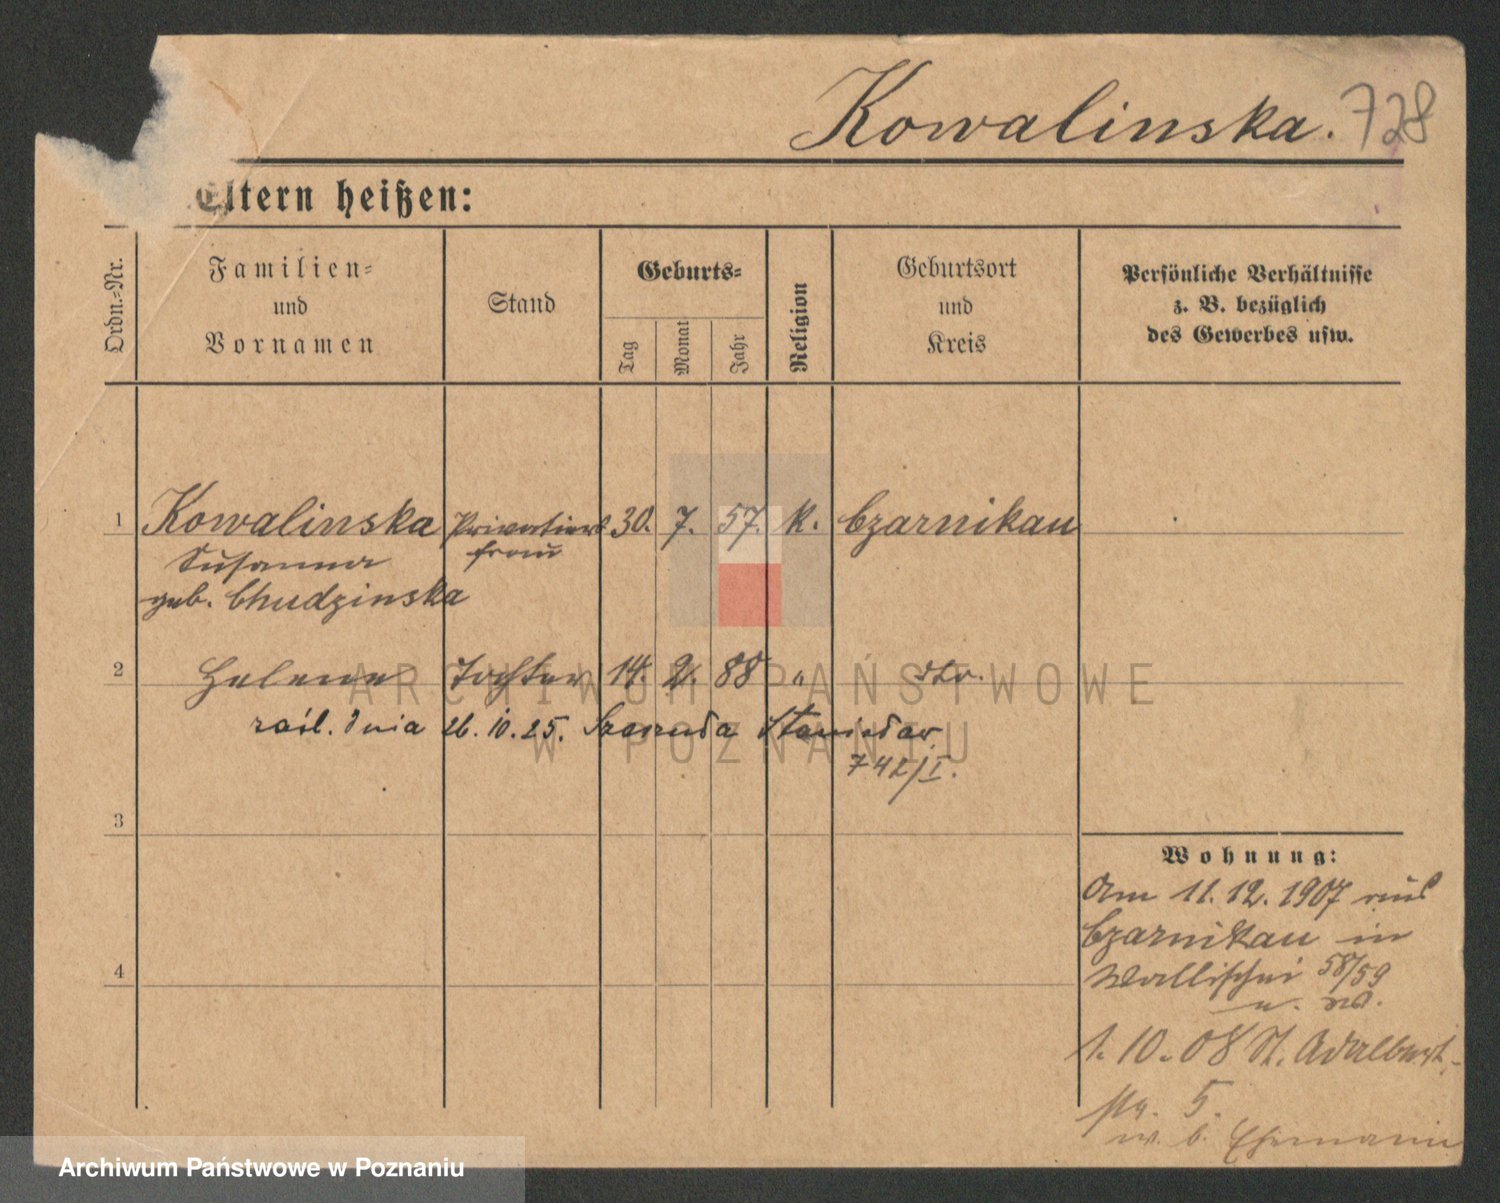 Kowalinska. 728
Eltern heißen:
Ordn.-Nr.
Familien-
und
Vornamen
Stand
Geburts-
Tag
Monat
Jahr
Religion
Geburtsort
und
Kreis
Persönliche Verhältnisse
z. B. bezüglich
des Gewerbes usw.
1 Kowalinska 30. 7. 57. k. Czarnikau
frau
Susanna
geb. Chudzinska
2 Helene Tochter 14. 2. 88 " dto.
zaśl. dnia 26. 10. 25. Stanisław
742/I.
3
4
Wohnung:
Am 11. 12. 1907 aus
Czarnikau in
Wallischei 58/59
1. 10. 08 St. Adalbert-
5.
Ehemann
ARCHIWUM PAŃSTWOWE
W POZNANIU
Archiwum Państwowe w Poznaniu